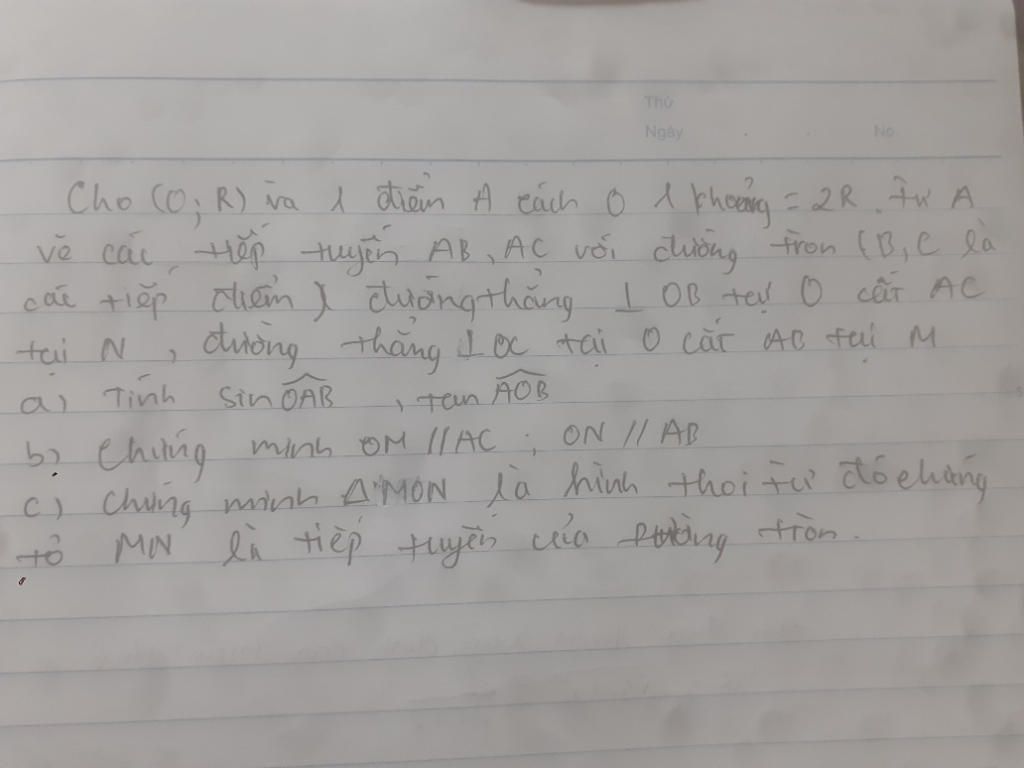 Thứ
Ngày . . No
Cho (O; R) và 1 điểm A cách O 1 khoảng = 2R. từ A
vẽ các tiếp tuyến AB, AC với đường tròn (B, C là
các tiếp điểm) đường thẳng ⊥ OB tại O cắt AC
tại N, đường thẳng ⊥ OC tại O cắt AB tại M
a) Tính sin OAB, tan AOB
b) Chứng minh OM // AC; ON // AB
c) Chứng minh Δ"MON là hình thoi từ đó chứng
tỏ MN là tiếp tuyến của đường tròn.